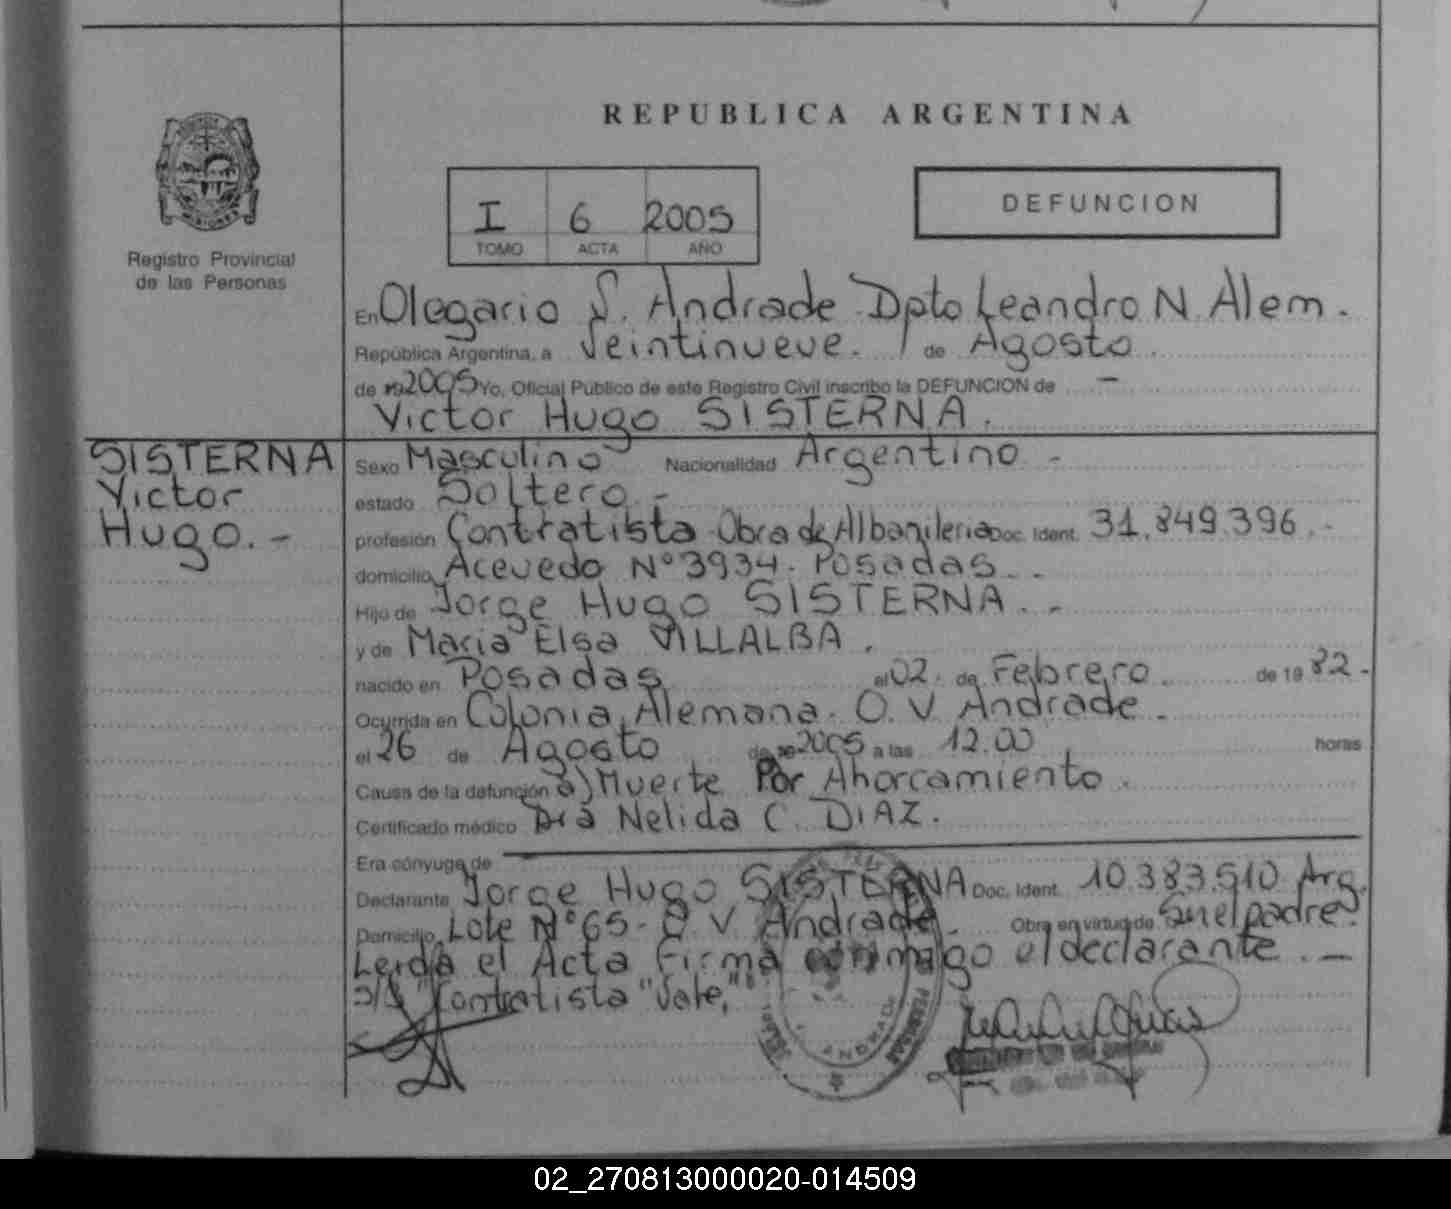 REPUBLICA ARGENTINA
I 6 2005
TOMO ACTA AÑO
DEFUNCION
Registro Provincial
de las Personas
En Olegario V. Andrade Dpto Leandro N. Alem.
República Argentina, a Veintinueve. de Agosto
de 19 2005 Yo, Oficial Público de este Registro Civil inscribo la DEFUNCION de -
Victor Hugo SISTERNA.
SISTERNA
Victor
Hugo. -
Sexo Masculino Nacionalidad Argentino -
estado Soltero -
profesión Contratista Obra de Albanileria Doc. Ident. 31.849.396. -
domicilio Acevedo Nº 3934. Posadas. -
Hijo de Jorge Hugo SISTERNA. -
y de Maria Elsa VILLALBA.
nacido en Posadas el 02. de Febrero de 19 82.-
Ocurrida en Colonia Alemana. O. V. Andrade.
el 26 de Agosto de 19 2005 a las 12.00 horas
Causa de la defunción a) Muerte Por Ahorcamiento.
Certificado médico Dra Nelida C. DIAZ.
Era cónyuge de
Declarante Jorge Hugo SISTERNA Doc. Ident. 10.383.510 Arg.
Domicilio Lote Nº 65 - O. V. Andrade. Obra en virtud de Ser el padre.
Leida el Acta Firma conmigo el declarante. -
s/r "Contratista" Vale,"
ANDRADE
02_270813000020-014509